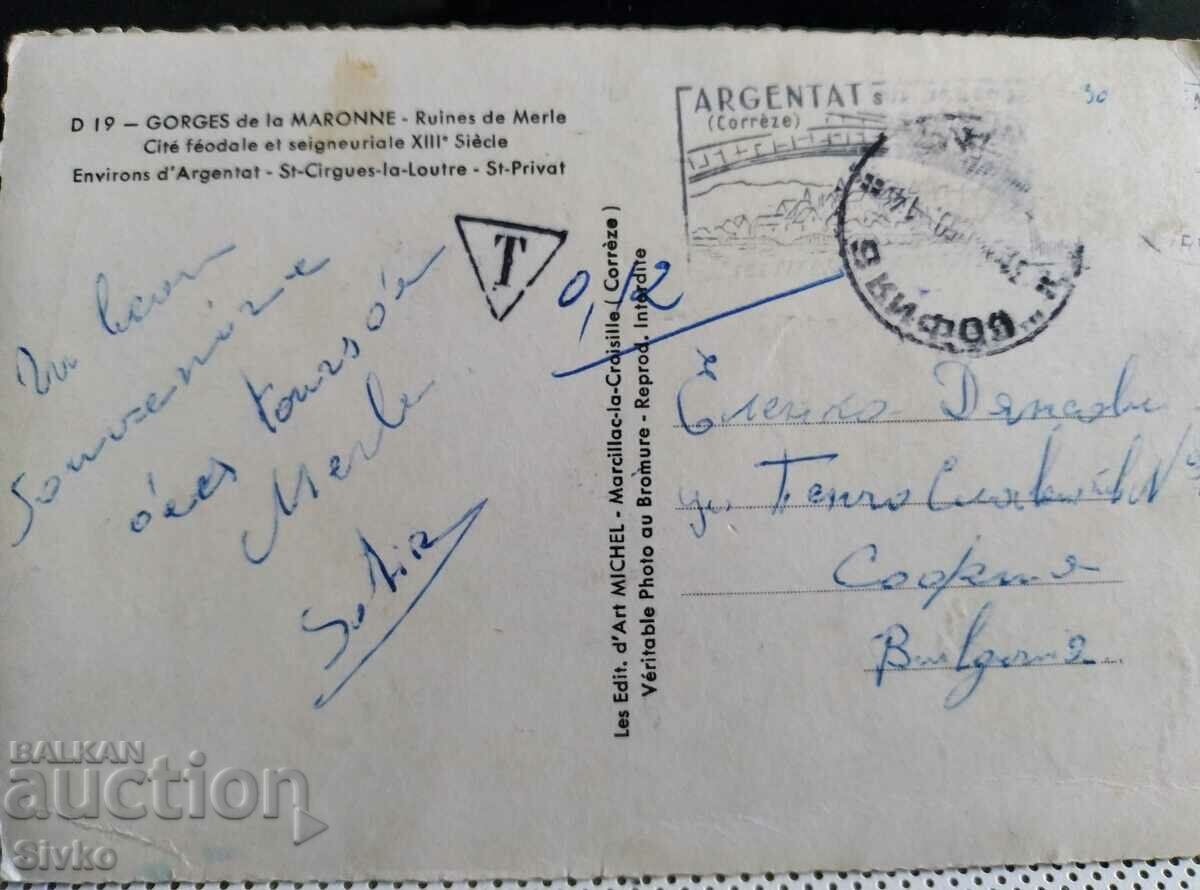 D 19 — GORGES de la MARONNE - Ruines de Merle
Cité féodale et seigneuriale XIIIe Siècle
Environs d'Argentat - St-Cirgues-la-Loutre - St-Privat
ARGENTAT s
(Corrèze)
30
T
0,12
СОФИЯ
souvenire
tours
Merle
Les Edit. d'Art MICHEL - Marcillac-la-Croisille (Corrèze)
Véritable Photo au Bromure - Reprod. Interdite
Еленко
ул Генчо Славейков №
София
Bulgaria
BALKAN
auction
Sivko